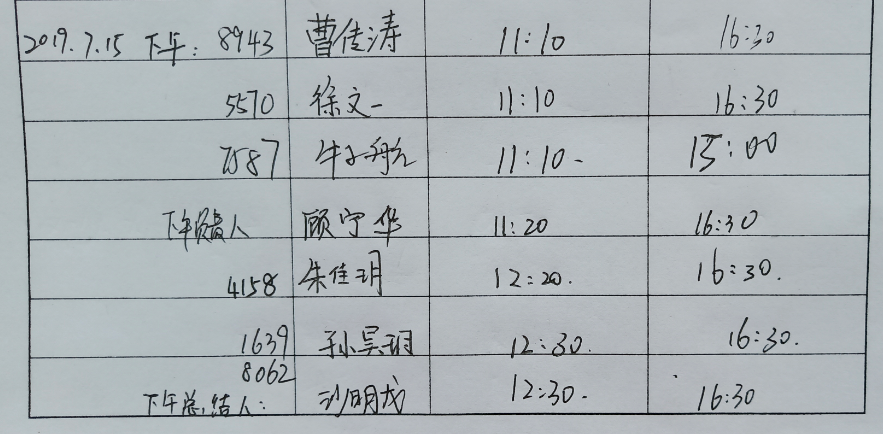 2019.7.15 下午: 8943 曹传涛 11:10 16:30
5570 徐文一 11:10 16:30
7587 牛子航 11:10- 15:00
下午负责人 顾宁华 11:20 16:30
4158 朱佳玥 12:20. 16:30.
1639 孙昊玥 12:30. 16:30.
8062
下午总结人: 沙明成 12:30. 16:30